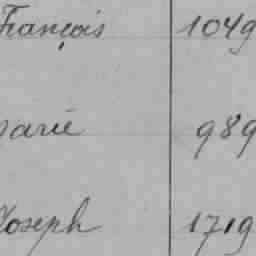 François 1049
Marie 989
Joseph 1719